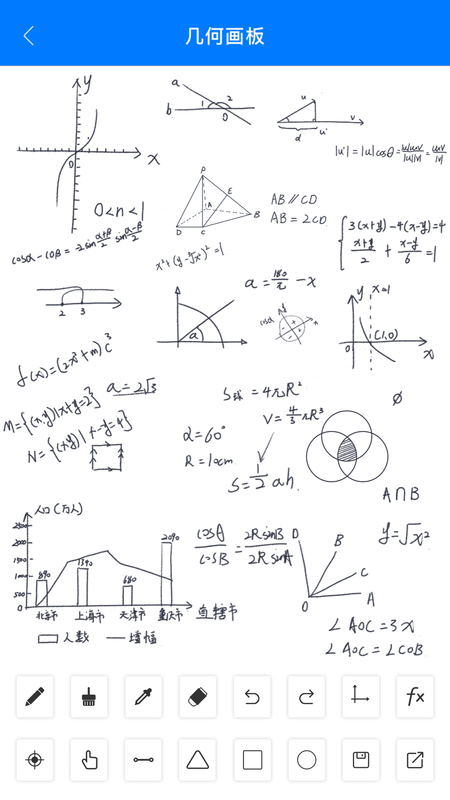 几何画板
y
x
0
0<n<1
a
b
1
2
0
u
v
u'
d
|u'|=|u|cosθ=
cosα-cosβ=-2sin α+β/2 sin α-β/2
P
E
A
B
D
C
AB∥CD
AB=2CD
3(x+y)-4(x-y)=4
x+y/2 + x-y/6 =1
x²+(y-∛x²)²=1
2 3
a
a=180/π -x
y
x=1
(1,0)
0
x
f(x)=(2x³+m)
a=2√3
M={(x,y)|x+y=2}
N={(x,y)|x-y=4}
S球=4πR²
V=4/3πR³
α=60°
R=10cm
S=1/2ah
Ø
A∩B
人口(万人)
2500
2000
1500
1000
500
0
890
1390
680
2090
北京市
上海市
天津市
重庆市
直辖市
人数
增幅
cosθ/cosB=2RsinB/2RsinA
D
B
C
A
0
y=√x²
∠AOC=3x
∠AOC=∠COB
fx